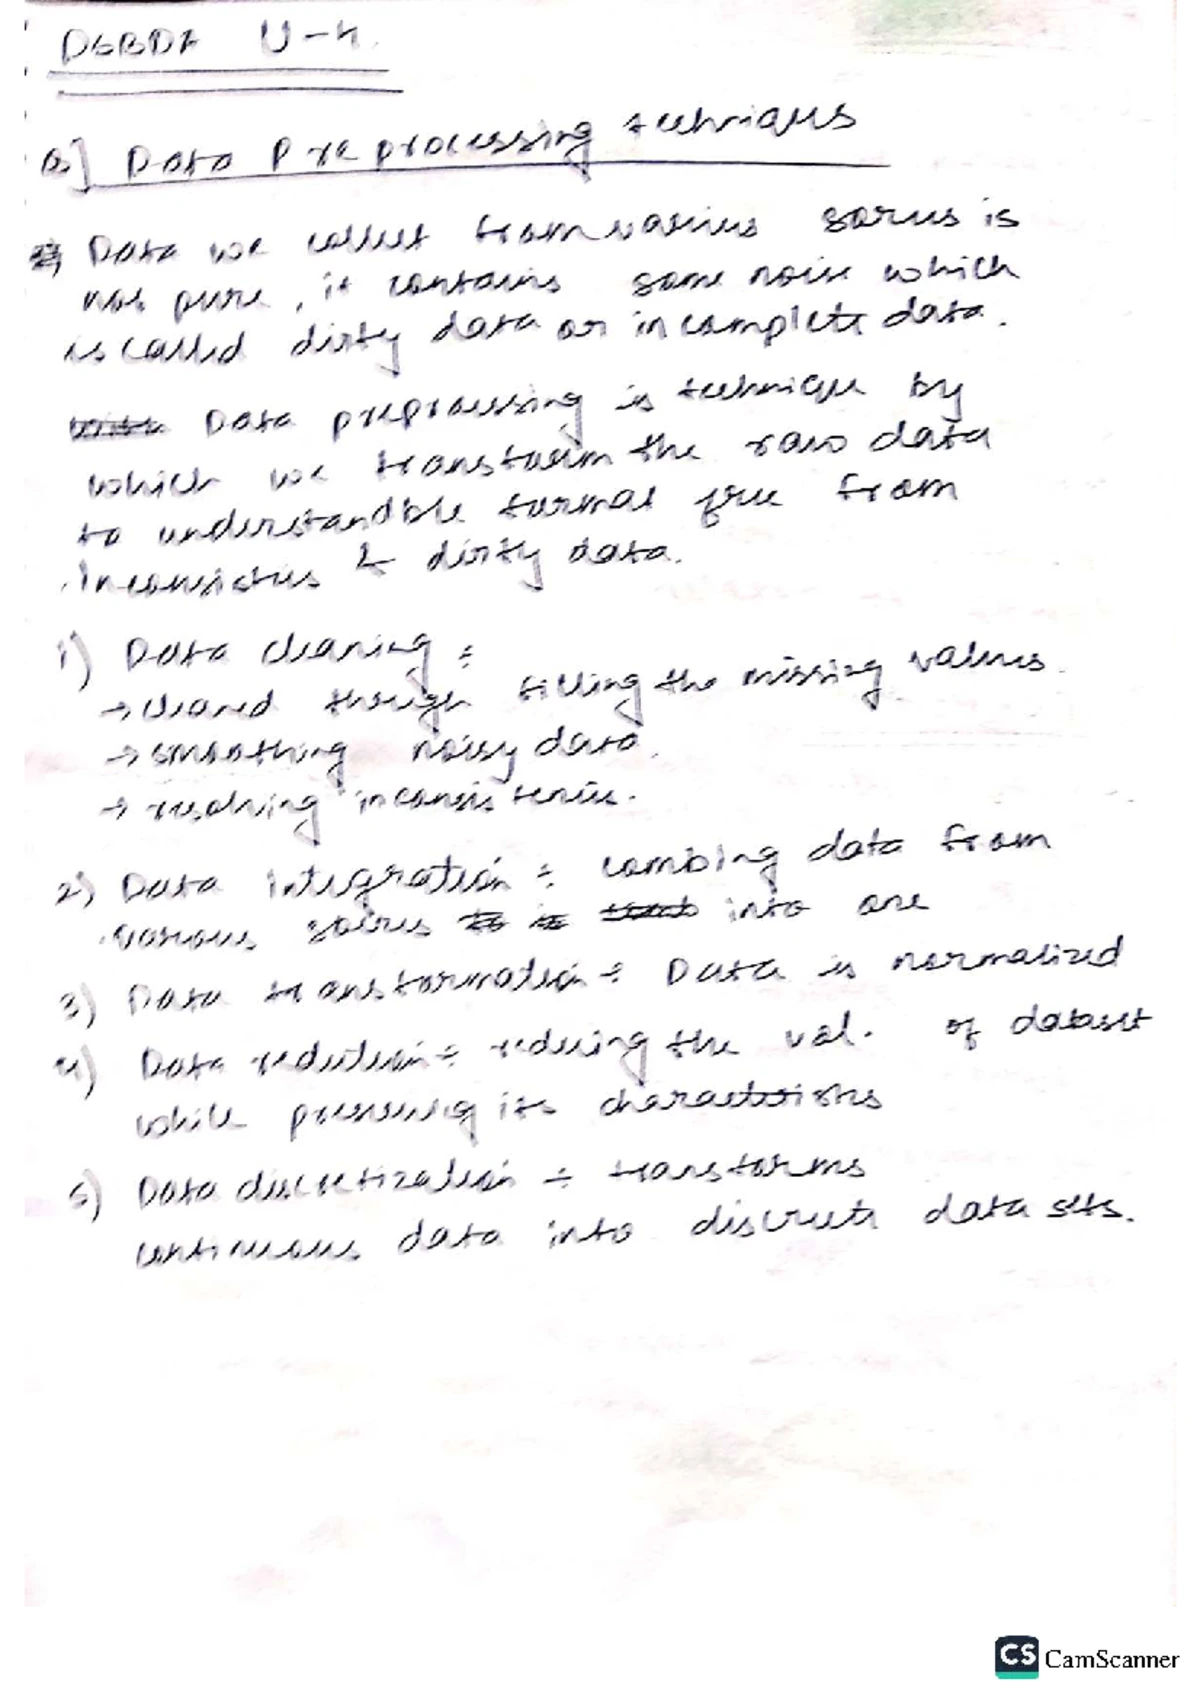 DSBDA U-4.
Q] Data Preprocessing techniques
Data we collect from various sorces is
not pure, it contains some noise which
is called dirty data or incomplete data.
Data preprocessing is technique by
which we transform the raw data
to understandble format free from
& dirty data.
1) Data cleaning :
→ cleaned though filling the missing values.
→ smoothing noisy data.
→ resolving inconsistencies.
2) Data integration : combing data from
various into one
3) Data transformation : Data is normalized
4) Data reduction : reducing the vol. of dataset
while preserving its
5) Data discretization : transforms
continuous data into discrete data sets.
CS CamScanner